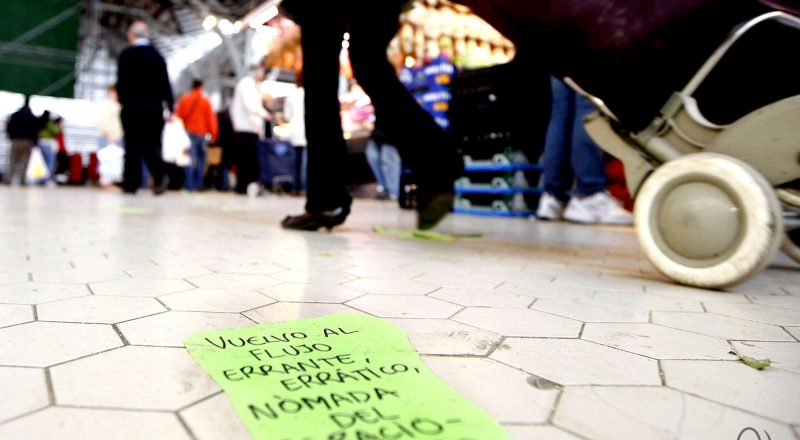 VUELVO AL
FLUJO
ERRANTE,
ERRÁTICO,
NÒMADA
DEL
ESPACIO-